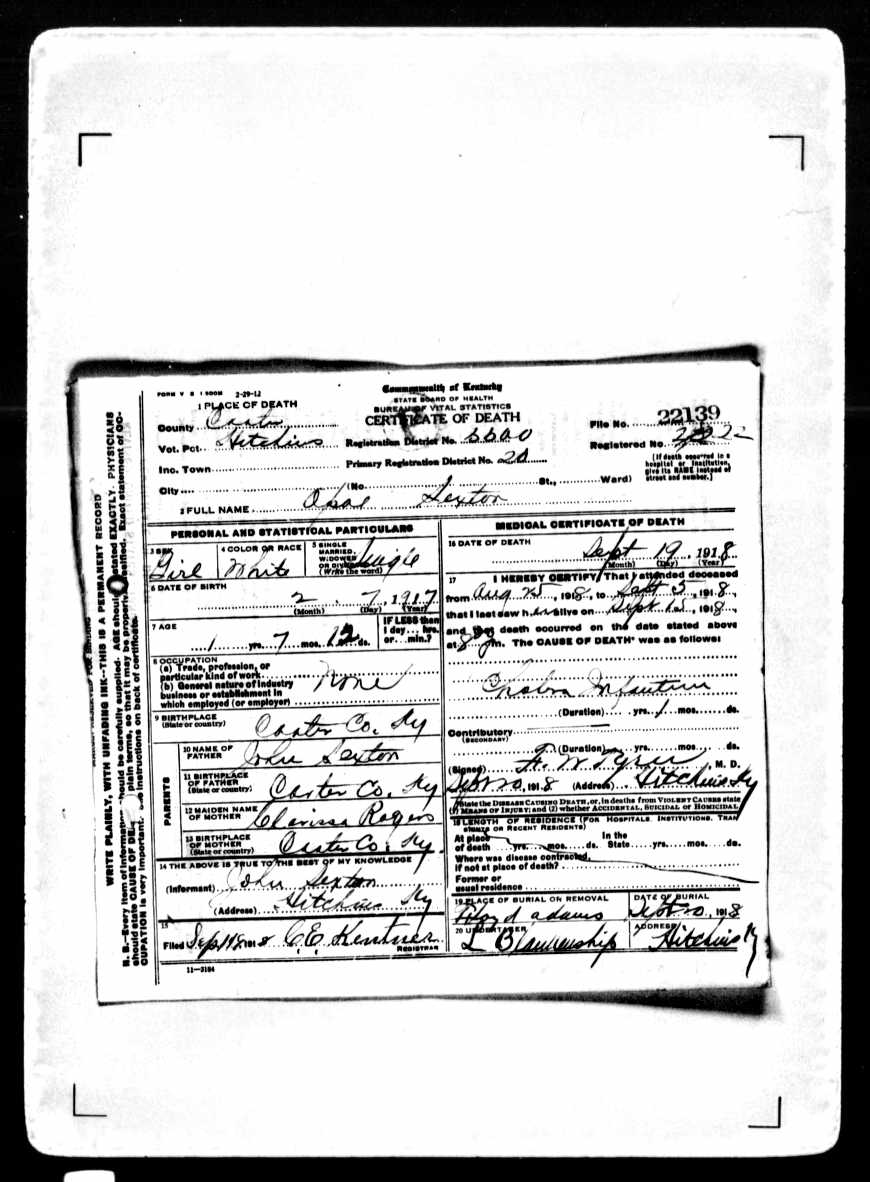 FORM V S 1 500M 2-29-12
Commonwealth of Kentucky
STATE BOARD OF HEALTH
BUREAU OF VITAL STATISTICS
CERTIFICATE OF DEATH
1 PLACE OF DEATH
County Carter
Vot. Pct. Hitchins
Inc. Town
City (No. St., Ward)
Registration District No.
Primary Registration District No. 20
File No. 22139
Registered No.
[If death occurred in a hospital or institution, give its NAME instead of street and number.]
2 FULL NAME Opal Sexton
PERSONAL AND STATISTICAL PARTICULARS
3 SEX Girl
4 COLOR OR RACE White
5 SINGLE MARRIED, WIDOWED OR DIVORCED (Write the word) Single
6 DATE OF BIRTH 2 7, 1917
(Month) (Day) (Year)
7 AGE 1 yrs. 7 mos. 12 ds.
IF LESS than 1 day... hrs. or... min.?
8 OCCUPATION
(a) Trade, profession, or particular kind of work
(b) General nature of industry business or establishment in which employed (or employer) None
9 BIRTHPLACE (State or country) Carter Co. Ky
PARENTS
10 NAME OF FATHER John Sexton
11 BIRTHPLACE OF FATHER (State or country) Carter Co. Ky
12 MAIDEN NAME OF MOTHER Clarissa Rogers
13 BIRTHPLACE OF MOTHER (State or country) Carter Co. Ky.
14 THE ABOVE IS TRUE TO THE BEST OF MY KNOWLEDGE
(Informant) John Sexton
(Address) Hitchins Ky
15
Filed Sep 1918 C.E. REGISTRAR
11-3184
MEDICAL CERTIFICATE OF DEATH
16 DATE OF DEATH Sept 19, 1918
(Month) (Day) (Year)
17 I HEREBY CERTIFY, That I attended deceased
from Aug 25, 1918, to Sept 5, 1918,
that I last saw h alive on Sept, 1918,
and that death occurred on the date stated above
at 8 m. The CAUSE OF DEATH* was as follows:
Cholera Infantum
(Duration) yrs. 1 mos. ds.
Contributory (SECONDARY)
(Duration) yrs. mos. ds.
(Signed) M. D.
Sept 20, 1918 (Address) Hitchins Ky
*State the DISEASE CAUSING DEATH, or, in deaths from VIOLENT CAUSES state (1) MEANS OF INJURY; and (2) whether ACCIDENTAL, SUICIDAL or HOMICIDAL
18 LENGTH OF RESIDENCE (FOR HOSPITALS, INSTITUTIONS, TRANSIENTS OR RECENT RESIDENTS)
At place of death yrs. mos. ds. In the State yrs. mos. ds.
Where was disease contracted, if not at place of death?
Former or usual residence
19 PLACE OF BURIAL OR REMOVAL Floyd adams
DATE OF BURIAL Sept 20, 1918
20 UNDERTAKER L Blankenship
ADDRESS Hitchins Ky
WRITE PLAINLY, WITH UNFADING INK--THIS IS A PERMANENT RECORD
N. B.--Every item of information should be carefully supplied. AGE should be stated EXACTLY. PHYSICIANS
should state CAUSE OF DEATH in plain terms, so that it may be properly classified. Exact statement of OC-
CUPATION is very important. See instructions on back of certificate.